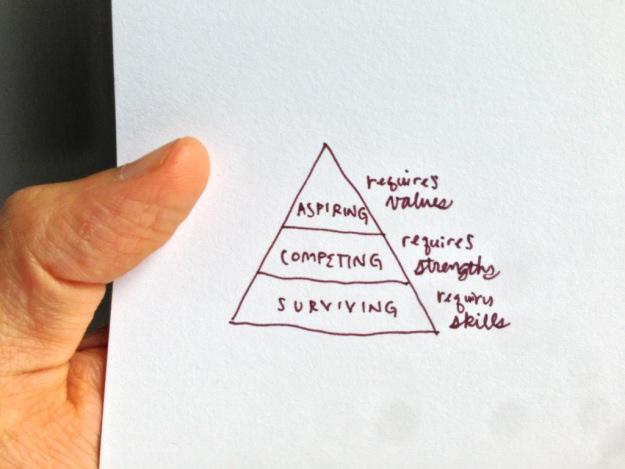 requires
values
ASPIRING
requires
COMPETING
strengths
requires
SURVIVING
skills